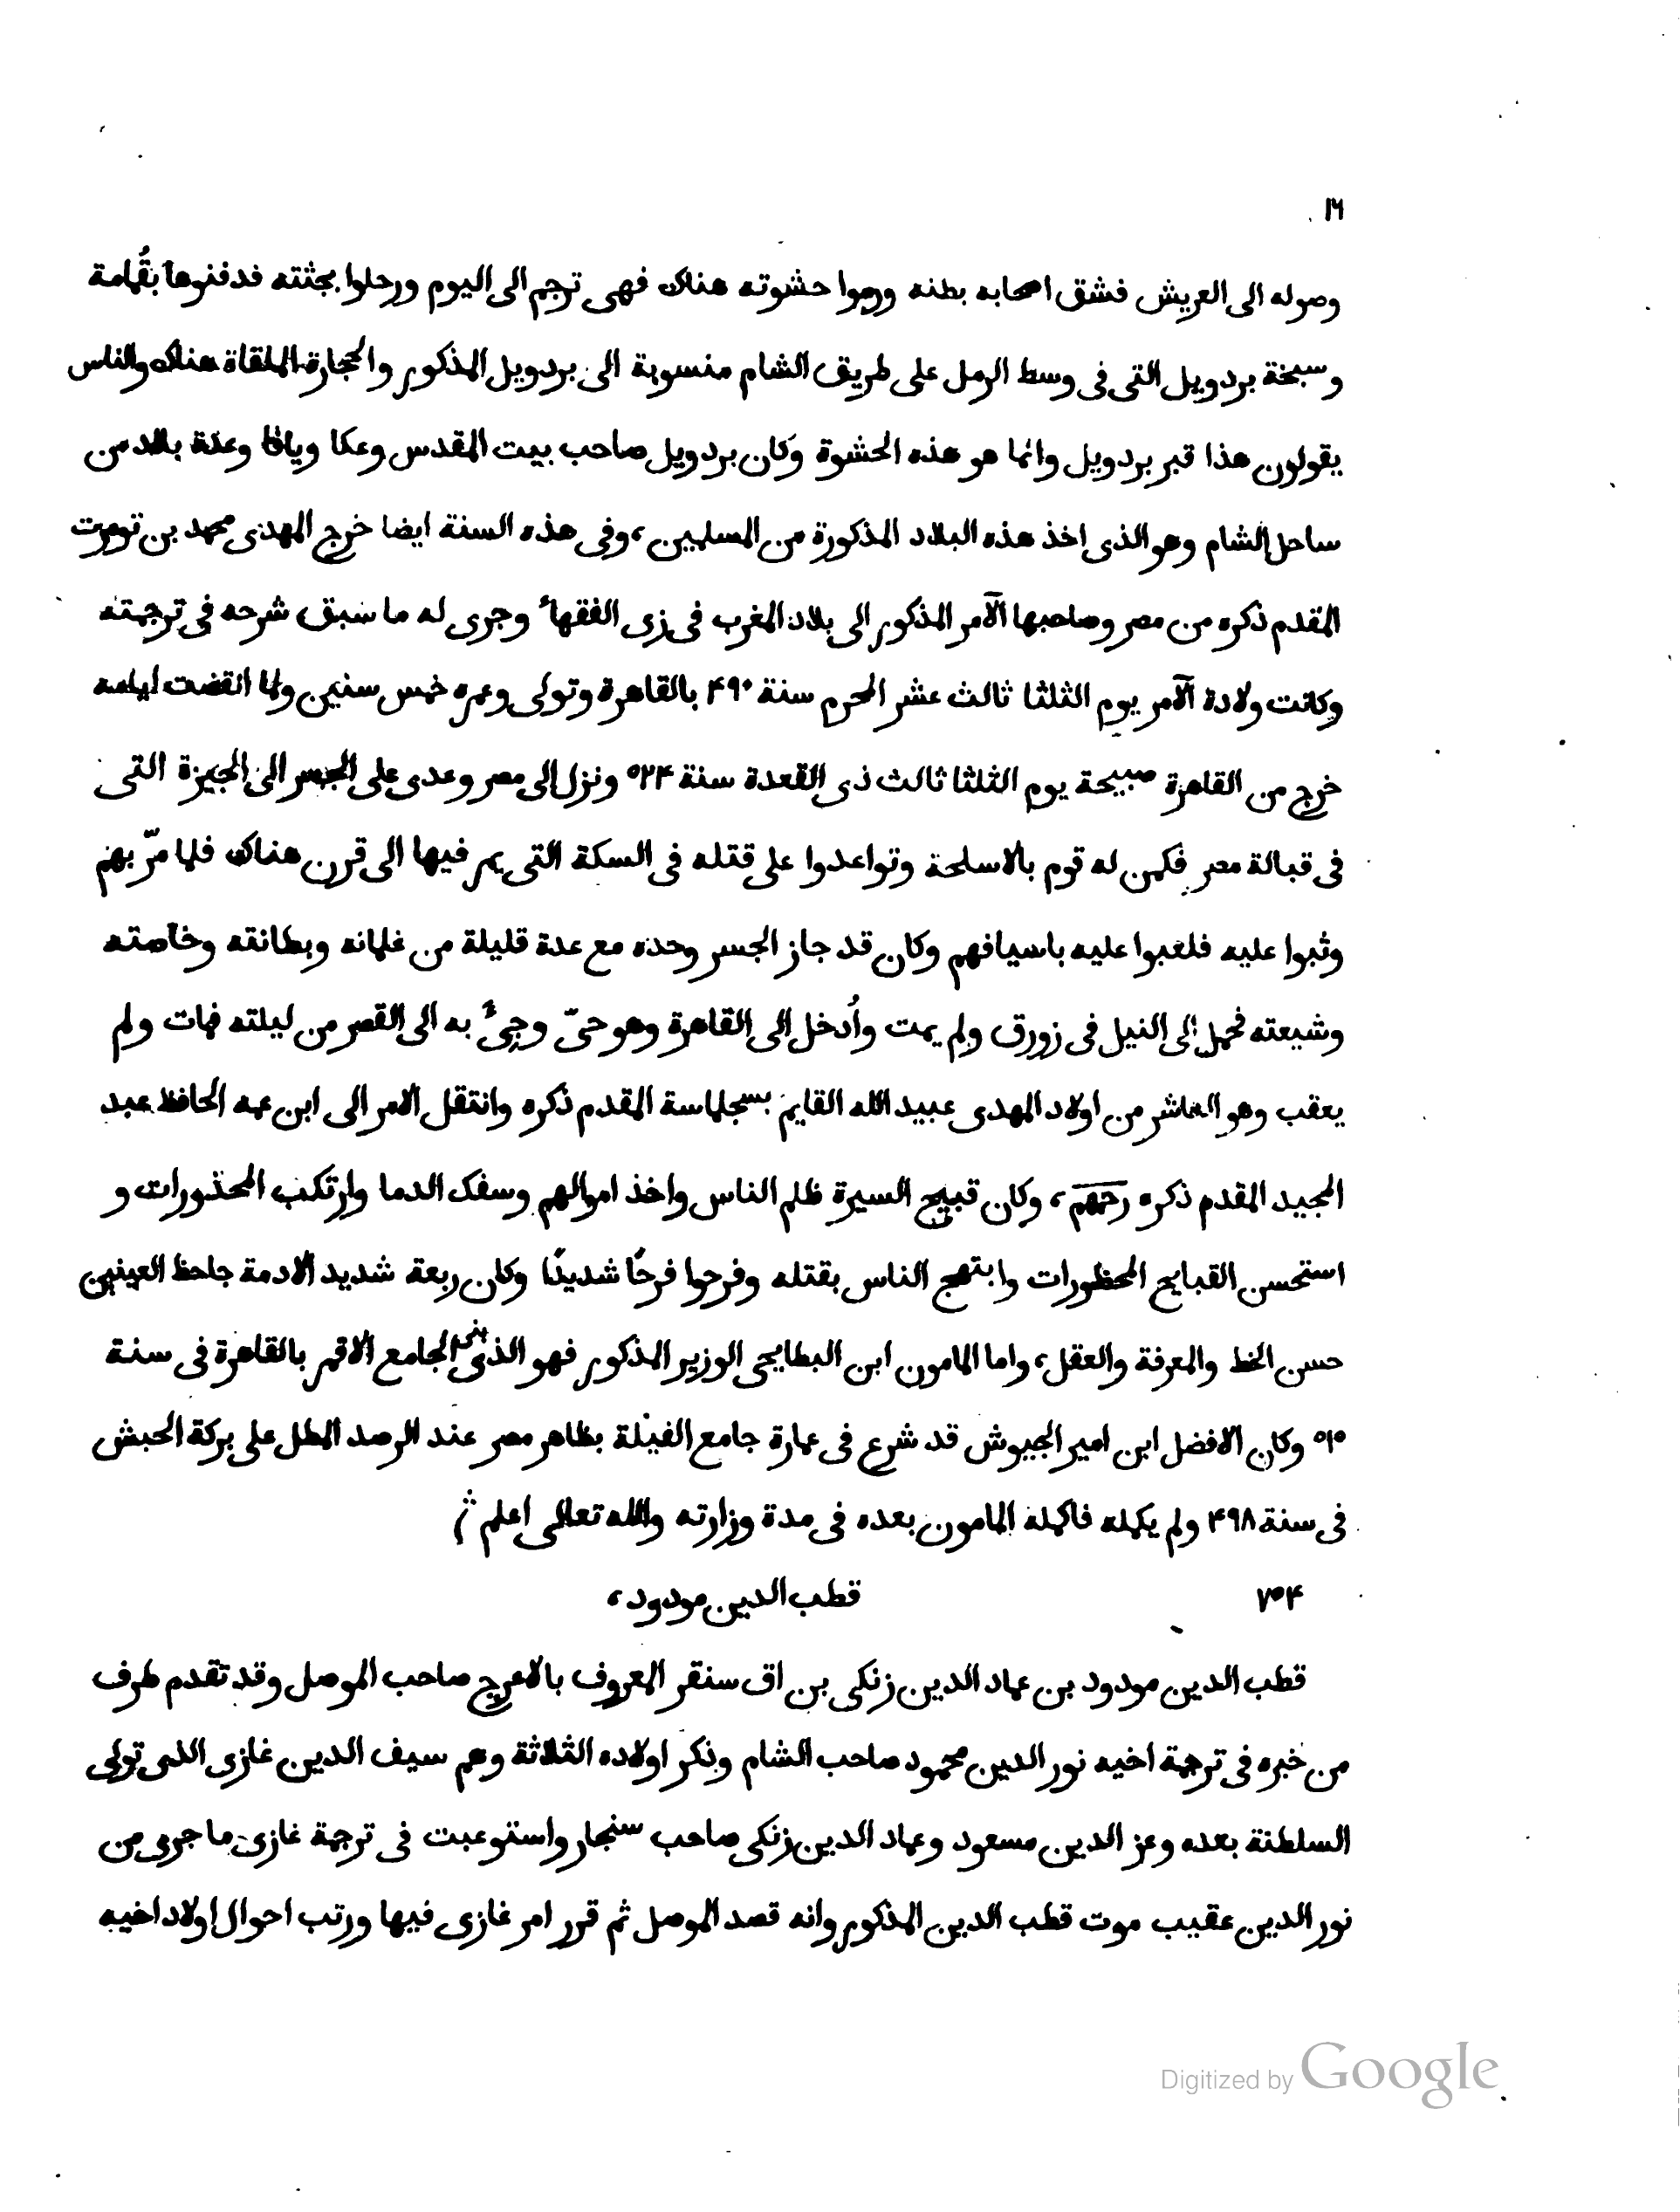 ١٦
وصوله الى العريش فشق اصحابه بطنه ورموا حشوته هناك فهى ترجم الى اليوم ورحلوا بجثته فدفنوها بقُمامة
وسبخة بردويل التى فى وسط الرمل على طريق الشام منسوبة الى بردويل المذكور والحجارة الملقاة هناك والناس
يقولون هذا قبر بردويل وانما هو هذه الحشوة وكان بردويل صاحب بيت المقدس وعكا ويافا وعدة بلاد من
ساحل الشام وهو الذى اخذ هذه البلاد المذكورة من المسلمين، وفى هذه السنة ايضا خرج المهدى محمد بن تومرت
المقدم ذكره من مصر وصاحبها الآمر المذكور الى بلاد المغرب فى زى الفقهاء وجرى له ما سبق شرحه فى ترجمته
وكانت ولادة الآمر يوم الثلثا ثالث عشر المحرم سنة ۴۹۰ بالقاهرة وتولى وعمره خمس سنين ولما انقضت ايامه
خرج من القاهرة صبيحة يوم الثلثا ثالث ذى القعدة سنة ۵۲۴ ونزل الى مصر وعدى على الجسر الى الجيزة التى
فى قبالة مصر فكمن له قوم بالاسلحة وتواعدوا على قتله فى السكة التى يمر فيها الى قرن هناك فلما مرّ بهم
وثبوا عليه فلعبوا عليه باسيافهم وكان قد جاز الجسر وحده مع عدة قليلة من غلمانه وبطانته وخاصته
وشيعته فحمل الى النيل فى زورق ولم يمت وأُدخل الى القاهرة وهو حىّ وجِىءَ به الى القصر من ليلته فمات ولم
يعقب وهو العاشر من اولاد المهدى عبيد الله القايم بسجلماسة المقدم ذكره وانتقل الامر الى ابن عمه الحافظ عبد
المجيد المقدم ذكره رحمهم، وكان قبيح السيرة ظلم الناس واخذ اموالهم وسفك الدما وارتكب المحذورات و
استحسن القبايح المحظورات وابتهج الناس بقتله وفرحوا فرحًا شديدًا وكان ربعة شديد الادمة جاحظ العينين
حسن الخط والمعرفة والعقل، واما المامون ابن البطايحى الوزير المذكور فهو الذى بنى الجامع الاقمر بالقاهرة فى سنة
۵۱۵ وكان الافضل ابن امير الجيوش قد شرع فى عمارة جامع الفيلة بظاهر مصر عند الرصد المطل على بركة الحبش
فى سنة ۴۹۸ ولم يكمله فاكمله المامون بعده فى مدة وزارته والله تعالى اعلم
۷۵۴ قطب الدين مودود،
قطب الدين مودود بن عماد الدين زنكى بن اق سنقر المعروف بالاعرج صاحب الموصل وقد تقدم طرف
من خبره فى ترجمة اخيه نور الدين محمود صاحب الشام وذكر اولاده الثلاثة وهم سيف الدين غازى الذى تولى
السلطنة بعده وعز الدين مسعود وعماد الدين زنكى صاحب سنجار واستوعبت فى ترجمة غازى ما جرى من
نور الدين عقيب موت قطب الدين المذكور وانه قصد الموصل ثم قرر امر غازى فيها ورتب احوال اولاد اخيه
Digitized by Google